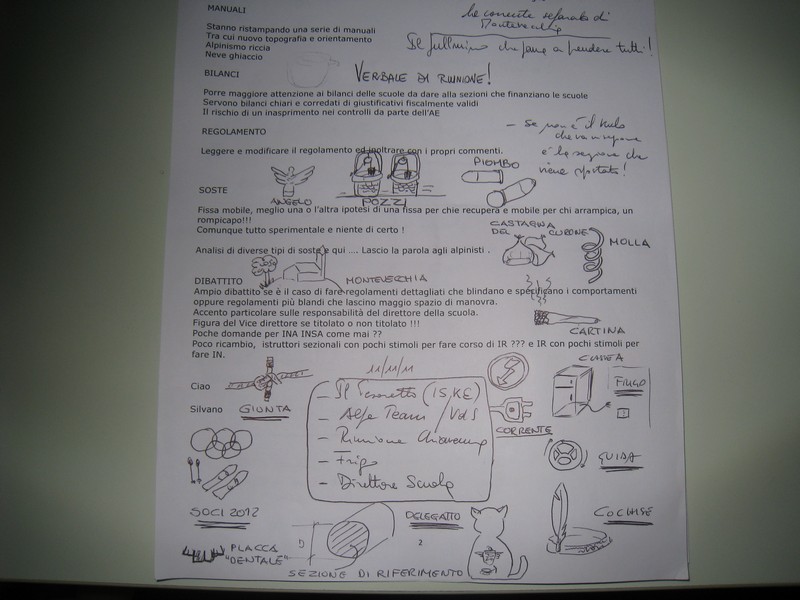 MANUALI
Stanno ristampando una serie di manuali
Tra cui nuovo topografia e orientamento
Alpinismo riccia
Neve ghiaccio
Montevecchia
Il fulmine che
a prendere tutti!
BILANCI
VERBALE DI RIUNIONE!
Porre maggiore attenzione ai bilanci delle scuole da dare alla sezioni che finanziano le scuole
Servono bilanci chiari e corredati di giustificativi fiscalmente validi
Il rischio di un inasprimento nei controlli da parte dell'AE
- se non è il
REGOLAMENTO
Leggere e modificare il regolamento ed inoltrare con i propri commenti.
è la sezione che
viene
PIOMBO
SOSTE
ANGELO
POZZI
Fissa mobile, meglio una o l'altra ipotesi di una fissa per chie recupera e mobile per chi arrampica, un
rompicapo!!!
Comunque tutto sperimentale e niente di certo !
CASTAGNA
DEL CURONE
MOLLA
Analisi di diverse tipi di soste e qui .... Lascio la parola agli alpinisti .
MONTEVECCHIA
DIBATTITO
Ampio dibattito se è il caso di fare regolamenti dettagliati che blindano e specificano i comportamenti
oppure regolamenti più blandi che lascino maggio spazio di manovra.
Accento particolare sulle responsabilità del direttore della scuola.
Figura del Vice direttore se titolato o non titolato !!!
Poche domande per INA INSA come mai ??
CARTINA
Poco ricambio, istruttori sezionali con pochi stimoli per fare corso di IR ??? e IR con pochi stimoli per
fare IN.
11/11/11
Ciao
Silvano
GIUNTA
- Il
(IS, KE)
- Alfe Team / VdS
- Riunione Chiavenna
- Frigo
- Direttore Scuola
FRIGO
CORRENTE
GUIDA
SOCI 2012
DELEGATTO
COCHISE
PLACCA
"DENTALE"
D
2
SEZIONE DI RIFERIMENTO